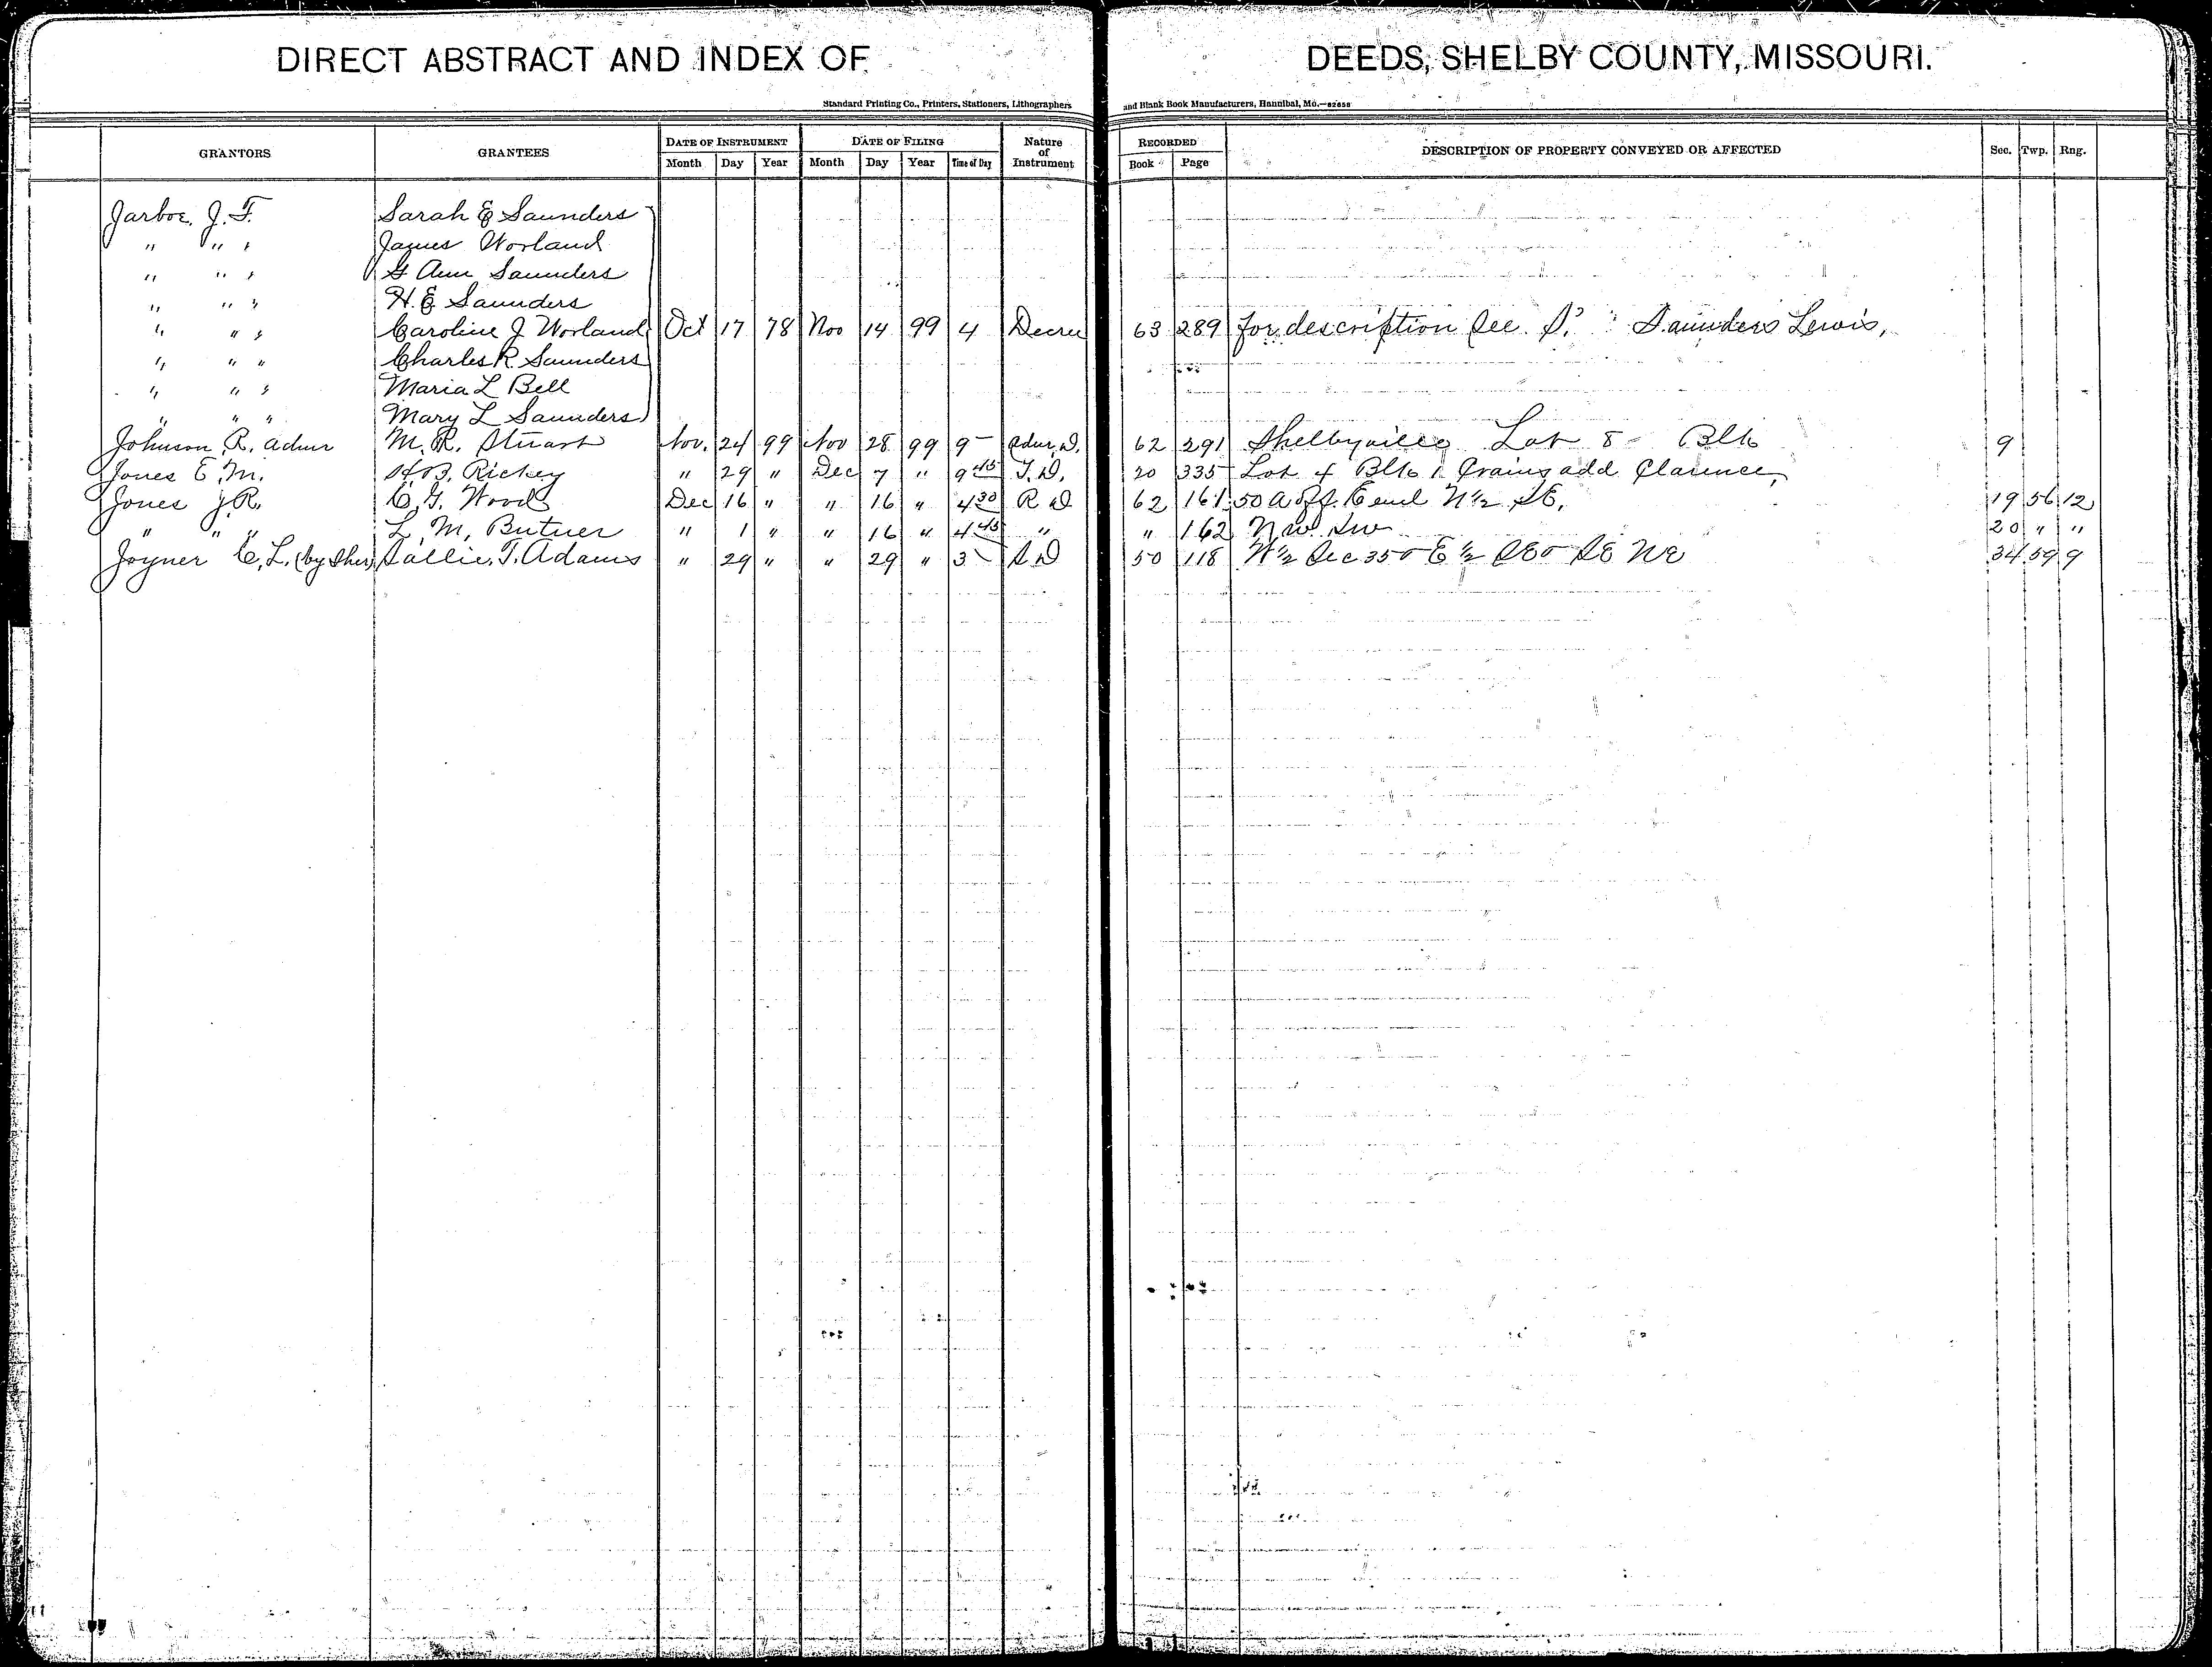 DIRECT ABSTRACT AND INDEX OF DEEDS, SHELBY COUNTY, MISSOURI.
Standard Printing Co., Printers, Stationers, Lithographers and Blank Book Manufacturers, Hannibal, Mo.
GRANTORS GRANTEES DATE OF INSTRUMENT DATE OF FILING Nature of Instrument RECORDED DESCRIPTION OF PROPERTY CONVEYED OR AFFECTED Sec. Twp. Rng.
Month Day Year Month Day Year Time of Day Book Page
Jarboe, J. T. Sarah E Saunders
" " " James Worland
" " " G Ann Saunders
" " " H. E Saunders
" " " Caroline J Worland Oct 17 78 Nov 14 99 4 Decree 63 289 for description See S. Saunders Lewis,
" " " Charles R. Saunders
" " " Maria L Bell
" " " Mary L Saunders
Johnson, R. admr M. R. Stuart Nov. 24 99 Nov 28 99 9 - Admr, D. 62 291 Shelbyville Lot 8 - Blk 9
Jones E. M. H. B. Richey " 29 " Dec 7 " 9 45 T. D. 20 335 Lot 4 Blk 1 Crains add Clarence,
Jones J. R. C. G. Wood Dec 16 " " 16 " 4 30 R D 62 161 50 a off E end N 1/2 SE, 19 56 12
" " " L. M. Butner " 1 " " 16 " 4 45 " " 162 N W SW 20 " "
Joyner C. L. (by Sher) Sallie. T. Adams " 29 " " 29 " 3 - S D 50 118 W 1/2 Sec 35 - E 1/2 SE - SE NE 34 59 9